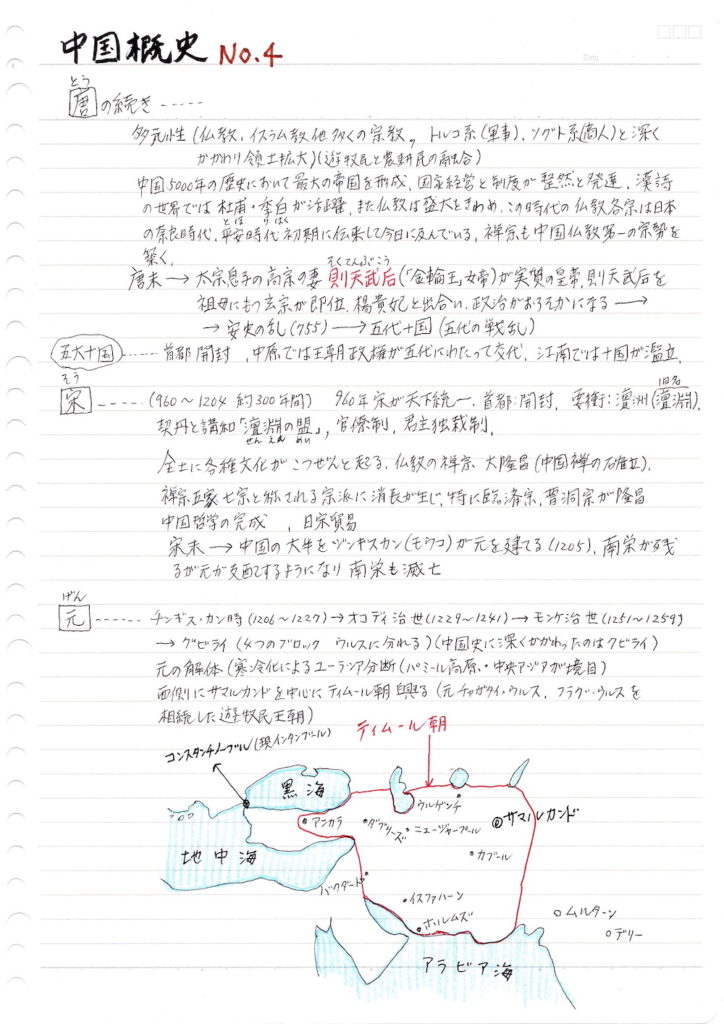 中国概史 No.4
Date
とう
唐の続き-----
多元性(仏教、イスラム教他多くの宗教、トルコ系(軍事)、ソグト系(商人)と深く
かかわり領土拡大)(遊牧民と農耕民の融合)
中国5000年の歴史において最大の帝国を形成、国家経営と制度が整然と発達、漢詩
の世界では杜甫・李白が活躍、また仏教は盛大をきわめ、この時代の仏教各宗は日本
とほ りはく
の奈良時代、平安時代初期に伝来して今日に及んでいる、禅宗も中国仏教第一の宗勢を
築く、
そくてんぶこう
唐末→太宗息子の高宗の妻 則天武后(「金輪王」女帝)が実質の皇帝、則天武后を
祖母にもつ玄宗が即位、楊貴妃と出合い、政治がおろそかになる→
→安史の乱(755)→五代十国(五代の戦乱)
五大十国-----首都開封、中原では王朝政権が五代にわたって交代、江南では十国が濫立、
そう
宋-----(960〜1204 約300年間) 960年宋が天下統一、首都:開封、要衝:澶洲(澶淵)、
旧名
契丹と講和「澶淵の盟」、官僚制、君主独裁制、
せんえん めい
全土に各種文化がこつぜんと起る、仏教の禅宗 大隆昌(中国禅の確立)、
禅宗五家七宗と称される宗派に消長が生じ、特に臨済宗、曹洞宗が隆昌
中国哲学の完成 、日宋貿易
宋末→中国の大半をジンギスカン(モウコ)が元を建てる(1205)、南栄が残
るが元が支配するようになり南栄も滅亡
げん
元------チンギス・カン時(1206〜1227)→オコディ治世(1229〜1241)→モンケ治世(1251〜1259)
→クビライ(4つのブロック ウルスに分れる)(中国史に深くかかわったのはクビライ)
元の解体(寒冷化によるユーラシア分断(パミール高原・中央アジアが境目)
西側にサマルカンドを中心にティムール朝興る(元チャガタイ・ウルス、フラグ・ウルスを
相続した遊牧民王朝)
ティムール朝
コンスタンチノープル(現インタンブール)
黒海
ウルゲンチ
アンカラ
タブリーズ
ニューシャープール
サマルカンド
地中海
カブール
バクダード
イスファハーン
ホルムズ
ムルターン
デリー
アラビア海